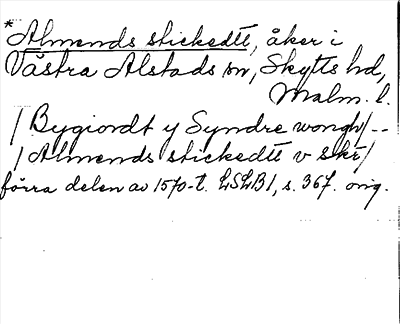 *Almends stickedtt, åker i
Västra Alstads sn, Skytts hd,
Malm. l.
/Bygiordt y Syndre wongh/--
/Almends stickedtt v skr/
förra delen av 1570-t. LSLB1, s. 367. orig.